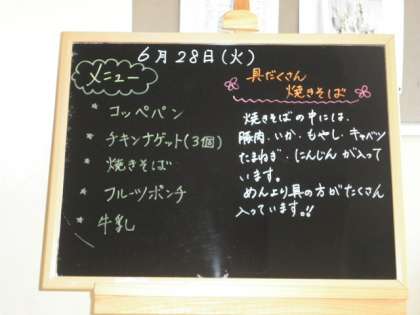 6月28日(火)
メニュー
* コッペパン
* チキンナゲット(3個)
* 焼きそば
* フルーツポンチ
* 牛乳
具だくさん
焼きそば
焼きそばの中には、
豚肉・いか・もやし・キャベツ
たまねぎ・にんじんが入って
います。
めんより具の方がたくさん
入っています。!!